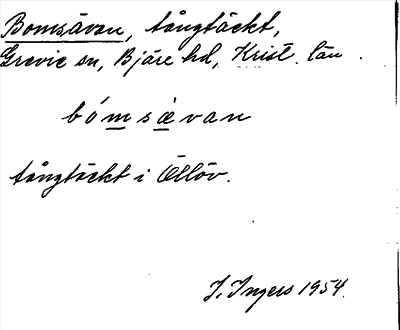 Bomsävan, tångtäckt,
Grevie sn, Bjäre hd, Krist. län.
bómsævan
tångtäckt i Öllöv.
J. Ingers 1954.